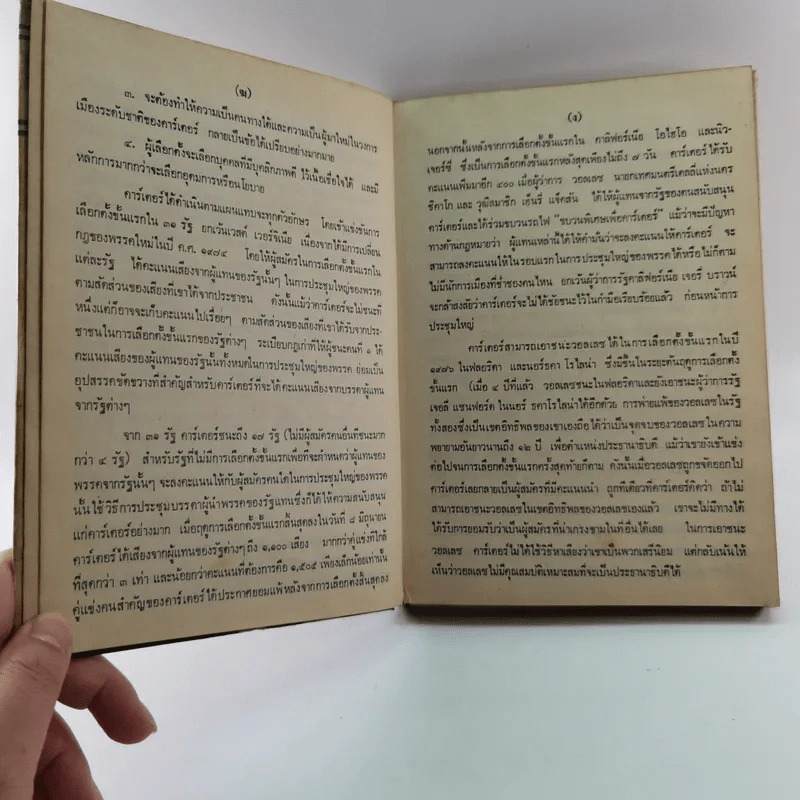 (ฆ)
๓. จะต้องทำให้ความเป็นคนทางใต้และความเป็นผู้มาใหม่ในวงการ
เมืองระดับชาติของคาร์เตอร์ กลายเป็นข้อได้เปรียบอย่างมากมาย
๔. ผู้เลือกตั้งจะเลือกบุคคลที่มีบุคลิกภาพดี ไว้เนื้อเชื่อใจได้ และมี
หลักการมากกว่าจะเลือกอุดมการหรือนโยบาย
คาร์เตอร์ได้ดำเนินตามแผนแทบจะทุกตัวอักษร โดยเข้าแข่งขันการ
เลือกตั้งขั้นแรกใน ๓๑ รัฐ ยกเว้นเวสต์ เวอร์จิเนีย เนื่องจากได้มีการเปลี่ยน
กฎของพรรคใหม่ในปี ค.ศ. ๑๙๗๔ โดยให้ผู้สมัครในการเลือกตั้งขั้นแรกใน
แต่ละรัฐ ได้คะแนนเสียงจากผู้แทนของรัฐนั้นๆ ในการประชุมใหญ่ของพรรค
ตามสัดส่วนของเสียงที่เขาได้จากประชาชน ดังนั้นแม้ว่าคาร์เตอร์จะไม่ชนะที่
หนึ่งแต่ก็อาจจะเก็บคะแนนไปเรื่อยๆ ตามสัดส่วนของเสียงที่เขาได้รับจากประ-
ชาชนในการเลือกตั้งขั้นแรกของรัฐต่างๆ ระเบียบกฎเก่าที่ให้ผู้ชนะคนที่ ๑ ได้
คะแนนเสียงของผู้แทนของรัฐนั้นทั้งหมดในการประชุมใหญ่ของพรรค ย่อมเป็น
อุปสรรคขัดขวางที่สำคัญสำหรับคาร์เตอร์ที่จะได้คะแนนเสียงจากบรรดาผู้แทน
จากรัฐต่างๆ
จาก ๓๑ รัฐ คาร์เตอร์ชนะถึง ๑๗ รัฐ (ไม่มีผู้สมัครคนอื่นที่ชนะมาก
กว่า ๔ รัฐ) สำหรับรัฐที่ไม่มีการเลือกตั้งขั้นแรกเพื่อที่จะกำหนดว่าผู้แทนของ
พรรคจากรัฐนั้นๆ จะลงคะแนนให้กับผู้สมัครคนใดในการประชุมใหญ่ของพรรค
นั้นใช้วิธีการประชุมบรรดาผู้นำพรรคของรัฐแทนซึ่งก็ได้ให้ความสนับสนุน
แก่คาร์เตอร์อย่างมาก เมื่อฤดูการเลือกตั้งขั้นแรกสิ้นสุดลงในวันที่ ๘ มิถุนายน
คาร์เตอร์ได้เสียงจากผู้แทนของรัฐต่างๆ ถึง ๑,๑๐๐ เสียง มากกว่าคู่แข่งที่ใกล้
ที่สุดกว่า ๓ เท่า และน้อยกว่าคะแนนที่ต้องการคือ ๑,๕๐๕ เพียงเล็กน้อยเท่านั้น
คู่แข่งคนสำคัญของคาร์เตอร์ได้ประกาศยอมแพ้หลังจากการเลือกตั้งสิ้นสุดลง
(ง)
นอกจากนั้นหลังจากการเลือกตั้งขั้นแรกใน คาลิฟอร์เนีย โอไฮโอ และนิว-
เจอร์ซี่ ซึ่งเป็นการเลือกตั้งขั้นแรกหลังสุดเพียงไม่ถึง ๗ วัน คาร์เตอร์ได้รับ
คะแนนเพิ่มมาอีก ๔๐๐ เมื่อผู้ว่าการ วอลเลซ นายกเทศมนตรีเดลลี่แห่งนคร
ชิคาโก และ วุฒิสมาชิก เฮ็นรี่ แจ็คสัน ได้ให้ผู้แทนจากรัฐของตนสนับสนุน
คาร์เตอร์และได้ร่วมขบวนรถไฟ "ขบวนพิเศษเพื่อคาร์เตอร์" แม้ว่าจะมีปัญหา
ทางด้านกฎหมายว่า ผู้แทนเหล่านี้ได้ให้คำมั่นว่าจะลงคะแนนให้คาร์เตอร์ จะ
สามารถลงคะแนนให้ในรอบแรกในการประชุมใหญ่ของพรรคได้หรือไม่ก็ตาม
ไม่มีนักการเมืองที่ช่ำชองคนไหน ยกเว้นผู้ว่าการรัฐคาลิฟอร์เนีย เจอรี่ บราวน์
จะกล้าสงสัยว่าคาร์เตอร์จะไม่ได้ชัยชนะไว้ในกำมือเรียบร้อยแล้ว ก่อนหน้าการ
ประชุมใหญ่
คาร์เตอร์สามารถเอาชนะวอลเลซได้ในการเลือกตั้งขั้นแรกในปี
๑๙๗๖ ในฟลอริดา และนอร์ธคาโรไลน่า ซึ่งมีขึ้นในระยะต้นฤดูการเลือกตั้ง
ขั้นแรก (เมื่อ ๔ ปีที่แล้ว วอลเลซชนะในฟลอริดาและยังเอาชนะผู้ว่าการรัฐ
เจอลี่ แซนฟอร์ด ในนอร์ ธคาโรไลน่าได้อีกด้วย การพ่ายแพ้ของวอลเลซในรัฐ
ทั้งสองซึ่งเป็นเขตอิทธิพลของเขาเองถือได้ว่าเป็นจุดจบของวอลเลซในความ
พยายามอันยาวนานถึง ๑๒ ปี เพื่อตำแหน่งประธานาธิบดี แม้ว่าเขายังเข้าแข่ง
ต่อไปจนการเลือกตั้งขั้นแรกครั้งสุดท้ายก็ตาม ดังนั้นเมื่อวอลเลซถูกขจัดออกไป
คาร์เตอร์เลยกลายเป็นผู้สมัครที่มีคะแนนนำ ถูกทีเดียวที่คาร์เตอร์คิดว่า ถ้าไม่
สามารถเอาชนะวอลเลซในเขตอิทธิพลของวอลเลซเองแล้ว เขาจะไม่มีทางได้
ได้รับการยอมรับว่าเป็นผู้สมัครที่น่าเกรงขามในที่อื่นได้เลย ในการเอาชนะ
วอลเลซ คาร์เตอร์ไม่ได้ใช้วิธีหาเสียงว่าเขาเป็นพวกเสรีนิยม แต่กลับเน้นให้
เห็นว่าวอลเลซไม่มีคุณสมบัติเหมาะสมที่จะเป็นประธานาธิบดีได้